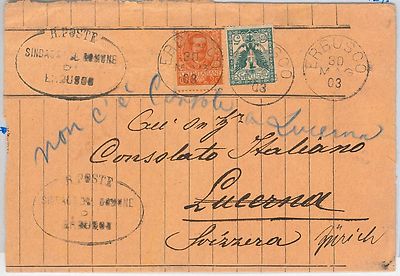 R. POSTE
SINDACO DEL COMUNE
DI
ERBUSCO
ERBUSCO
30
03
ERBUSCO
30
MAR
03
non c'è Console a Lucerna
Consolato Italiano
Lucerna
Svizzera
Zürich
R. POSTE
SINDACO DEL COMUNE
DI
ERBUSCO